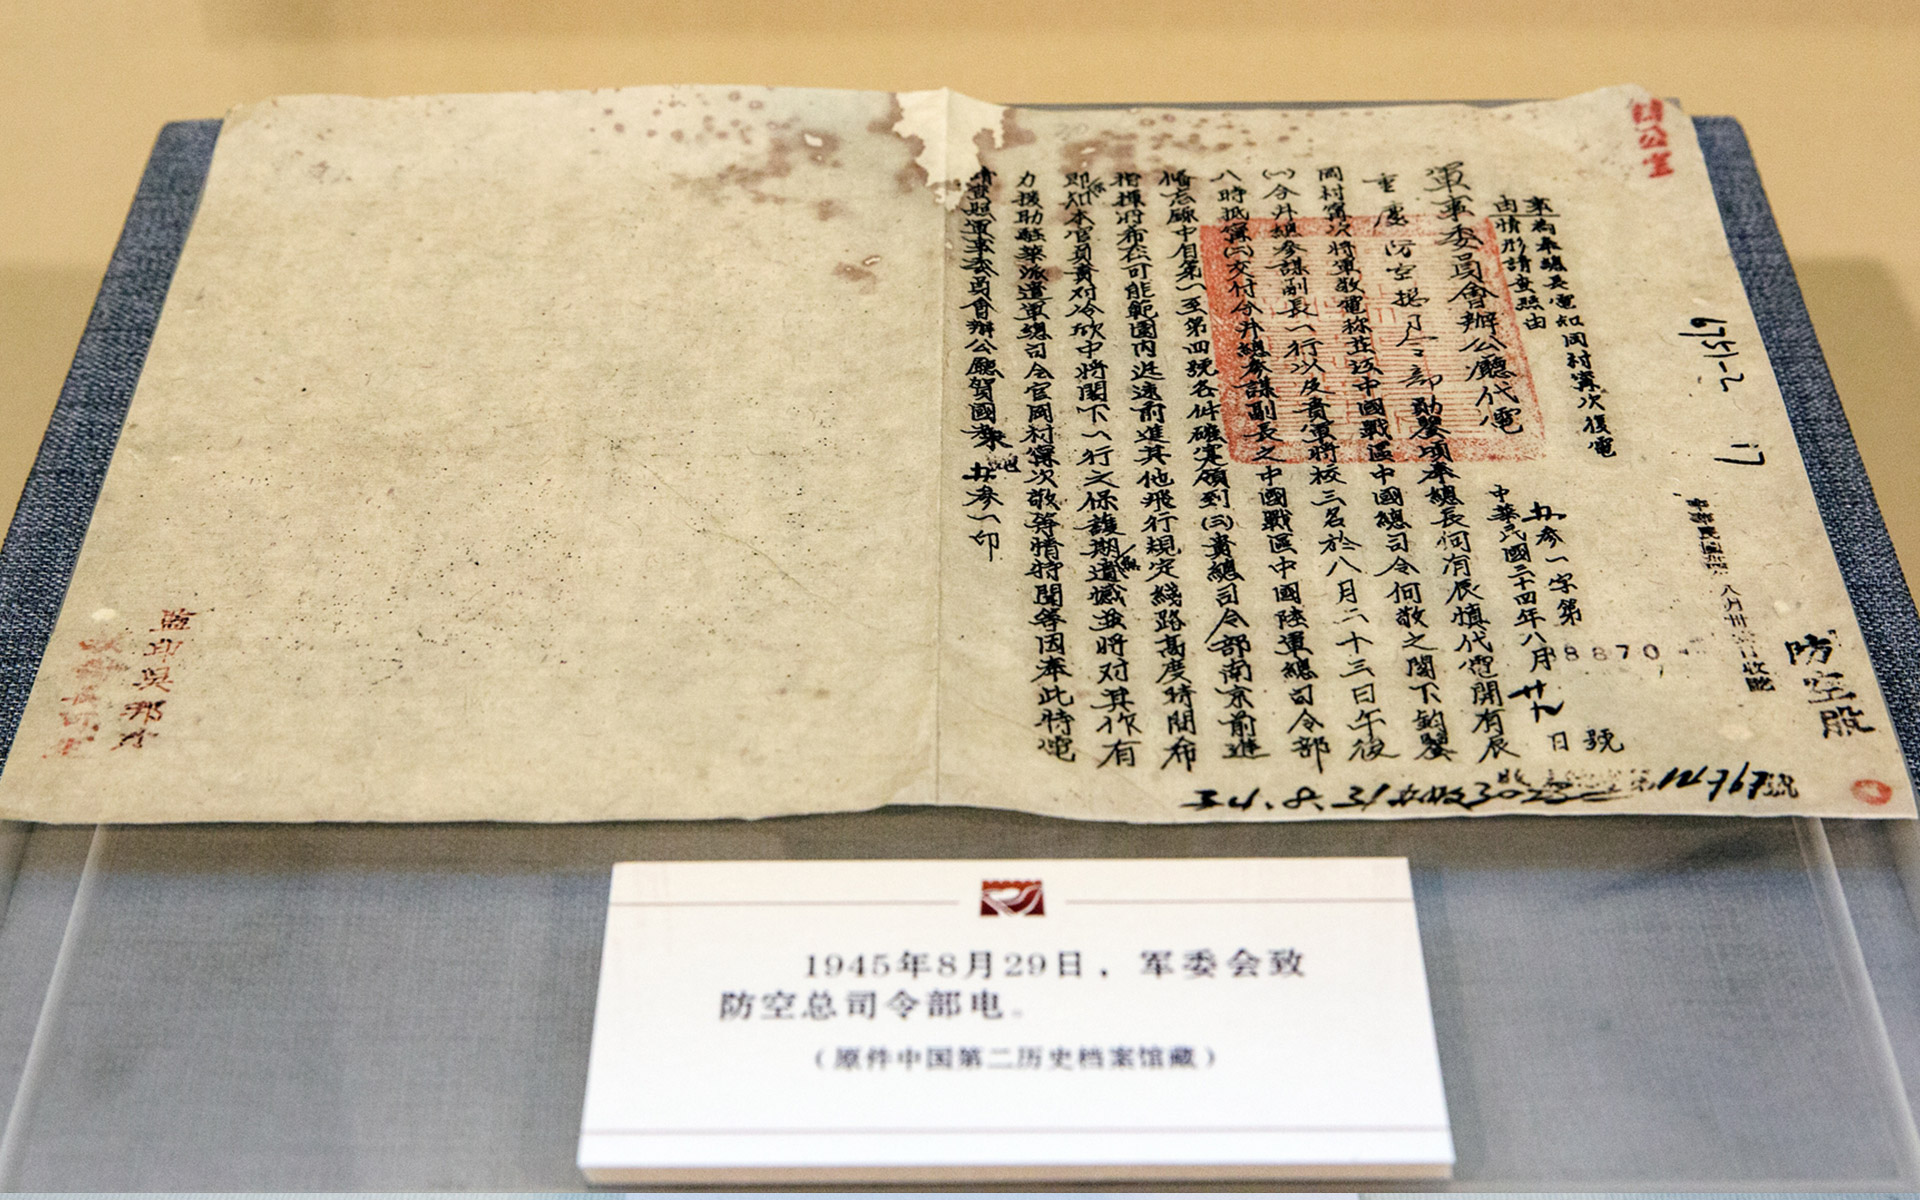 辦公室
防空股
事為奉總長電知岡村寧次復電
由情形請查照由
軍事委員會辦公廳代電
中華民國三十四年八月廿九日
五参一字第8870號
重慶防空總司令部勛鑒頃奉總長何有辰慎代電開有辰
岡村寧次將軍敬電称並致中國戰區中國總司令何敬之閣下鈞鑒
(一)今井總參謀副長一行以及貴軍將校三名於八月二十三日午後
八時抵寧(二)交付今井總參謀副長之中國戰區中國陸軍總司令部
備忘錄中自第一至第四號各件確實領到(三)貴總司令部南京前進
指揮所希在可能範圍内迅速前進其他飛行規定綫路高度時間希
即知本官員責对冷欣中將閣下一行之保護期無遺憾並將对其作有
力援助駐華派遣軍總司令官岡村寧次敬等情特開等因奉此特電
請查照軍事委員會辦公廳賀國 五参一印
監印吳
1945年8月29日，军委会致
防空总司令部电。
（原件中国第二历史档案馆藏）